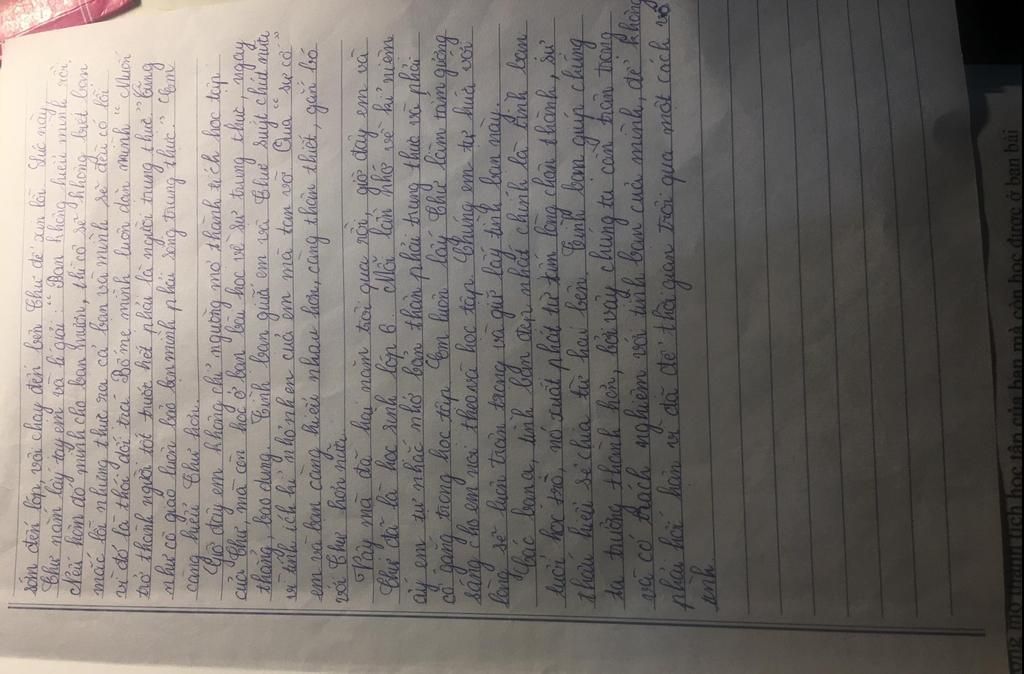 sớm đến lớp, vội chạy đến bên Thư để xin lỗi. Lúc này
Thư nắm lấy tay em và lí giải: "Bạn không hiểu mình rồi.
Nếu hôm đó mình cho bạn mượn, thì cô sẽ không biết bạn
mắc lỗi nhưng thực ra cả bạn và mình sẽ đều có lỗi
vì đó là thói dối trá. Bố mẹ mình luôn dặn mình "Muốn
trở thành người tốt trước hết phải là người trung thực" cũng
như cô giáo luôn bảo bọn mình phải sống trung thực". Em
càng hiểu Thư hơn.
Giờ đây em không chỉ ngưỡng mộ thành tích học tập
của Thư, mà còn học ở bạn bài học về sự trung thực, ngay
thẳng, bao dung. Tình bạn giữa em và Thư suýt chút nữa
vì tính ích kỉ nhỏ nhen của em mà tan vỡ. Qua "sự cố"
em và bạn càng hiểu nhau hơn, càng thân thiết, gắn bó
với Thư hơn nữa.
Vậy mà đã hai năm trôi qua rồi, giờ đây em và
Thư đã là học sinh lớp 6. Mỗi lần nhớ về kỉ niệm
ấy em tự nhắc nhở bản thân phải trung thực và phải
cố gắng trong học tập. Em luôn lấy Thư làm tấm gương
sáng cho em noi theo và học tập. Chúng em tự hứa với
lòng sẽ luôn trân trọng và giữ lấy tình bạn này.
Các bạn ạ, tình bạn đẹp nhất chính là tình bạn
tuổi học trò, nó xuất phát từ tấm lòng chân thành, sự
thấu hiểu sẻ chia từ hai bên. Tình bạn giúp chúng
ta trưởng thành hơn, bởi vậy chúng ta cần trân trọng
và có trách nghiệm với tình bạn của mình, để không
phải hối hận vì đã để thời gian trôi qua một cách vô
tình
ong mộ thành tích học tập của bạn mà còn học được ở bạn bài